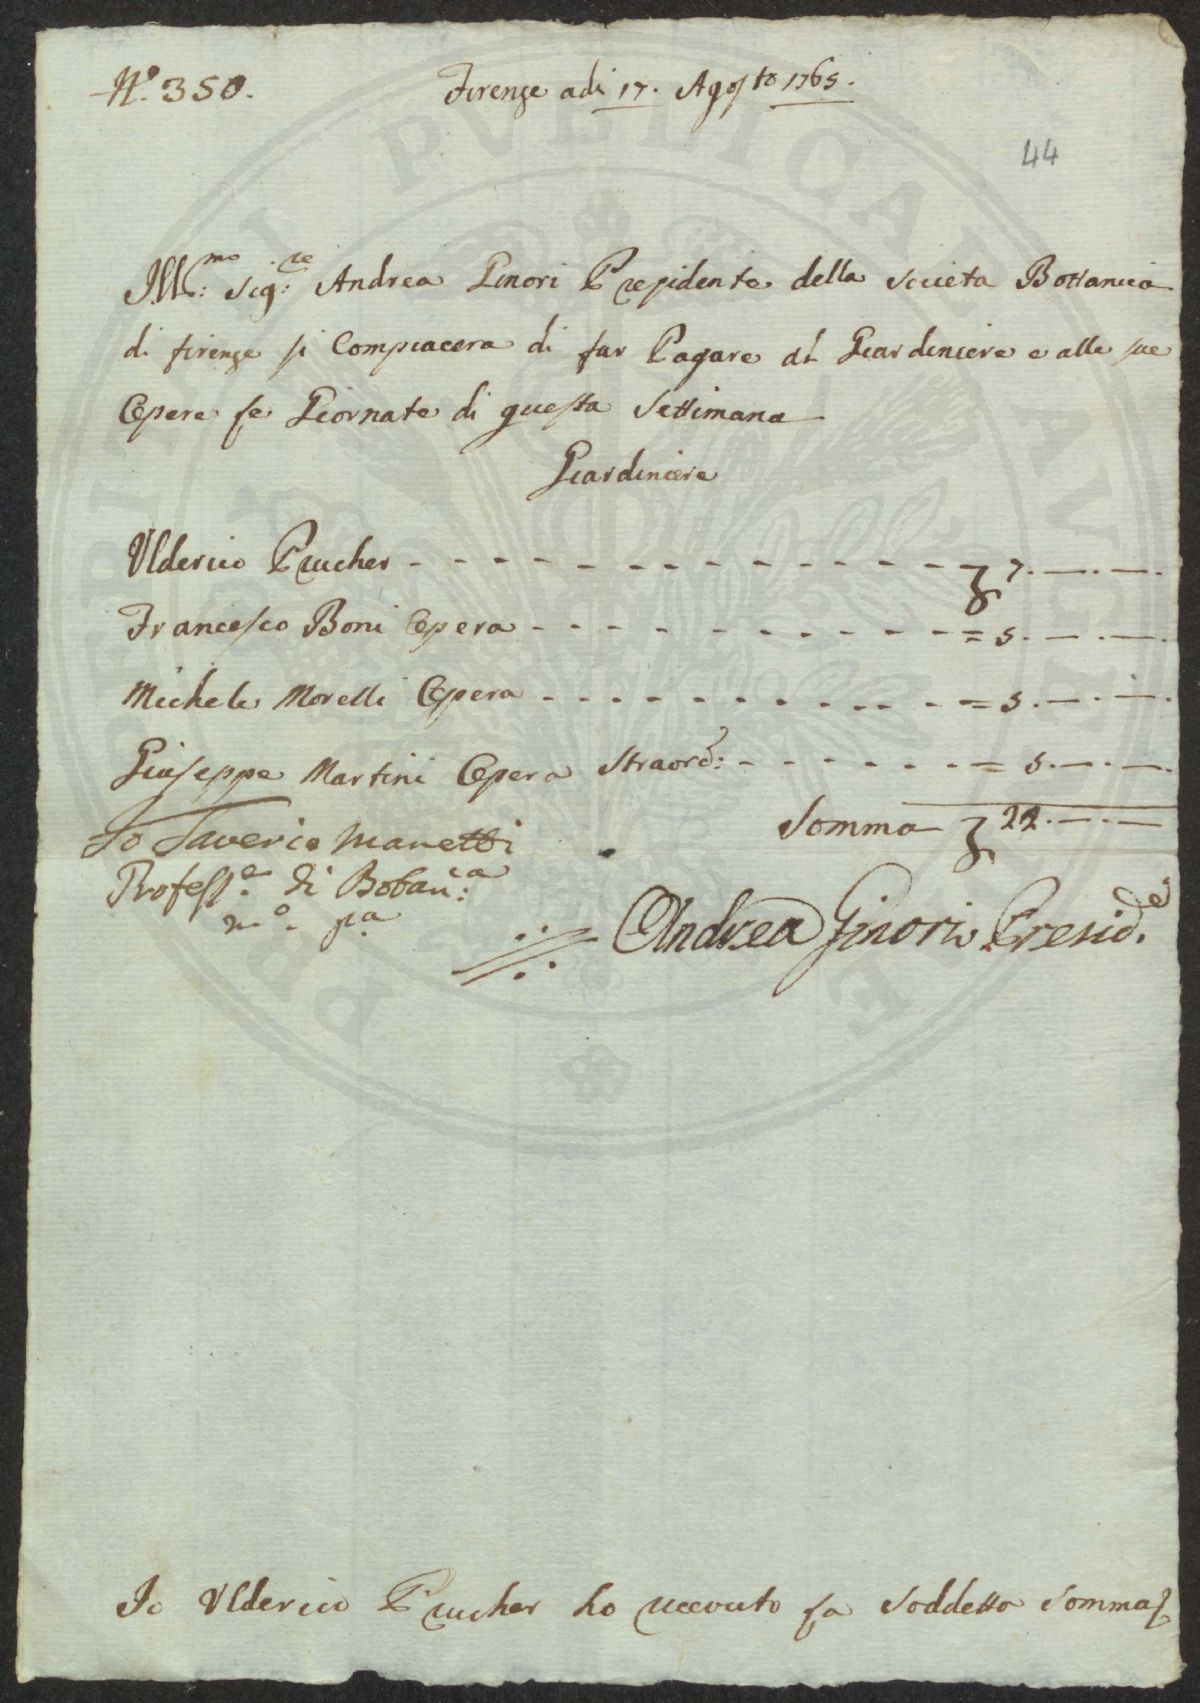 N.° 350.
Firenze adi 17. Agosto 1765.
44
Ill.mo Sig.re Andrea Ginori Presidente della Società Bottanica
di firenze si Compiacera di far Pagare al Giardiniere e alle sue
Opere le Giornate di questa Settimana
Giardiniere
Ulderico Prucher - - - - - - - - - - - - - - 7. — . — .
Francesco Boni Opera - - - - - - - - - - - = 5. — . — .
Michele Morelli Opera - - - - - - - - - - - = 5. — . — .
Giuseppe Martini Opera Straord: - - - - - - - = 5. — . — .
Somma 22. — . —
Io Saverio Manetti
Profess.e di Botan:ca
m.o p.a
Andrea Ginori Presid.e
Io Ulderico Prucher ho riceuto la Soddetta Somma
PERITI PVBLICAE AVGENDAE